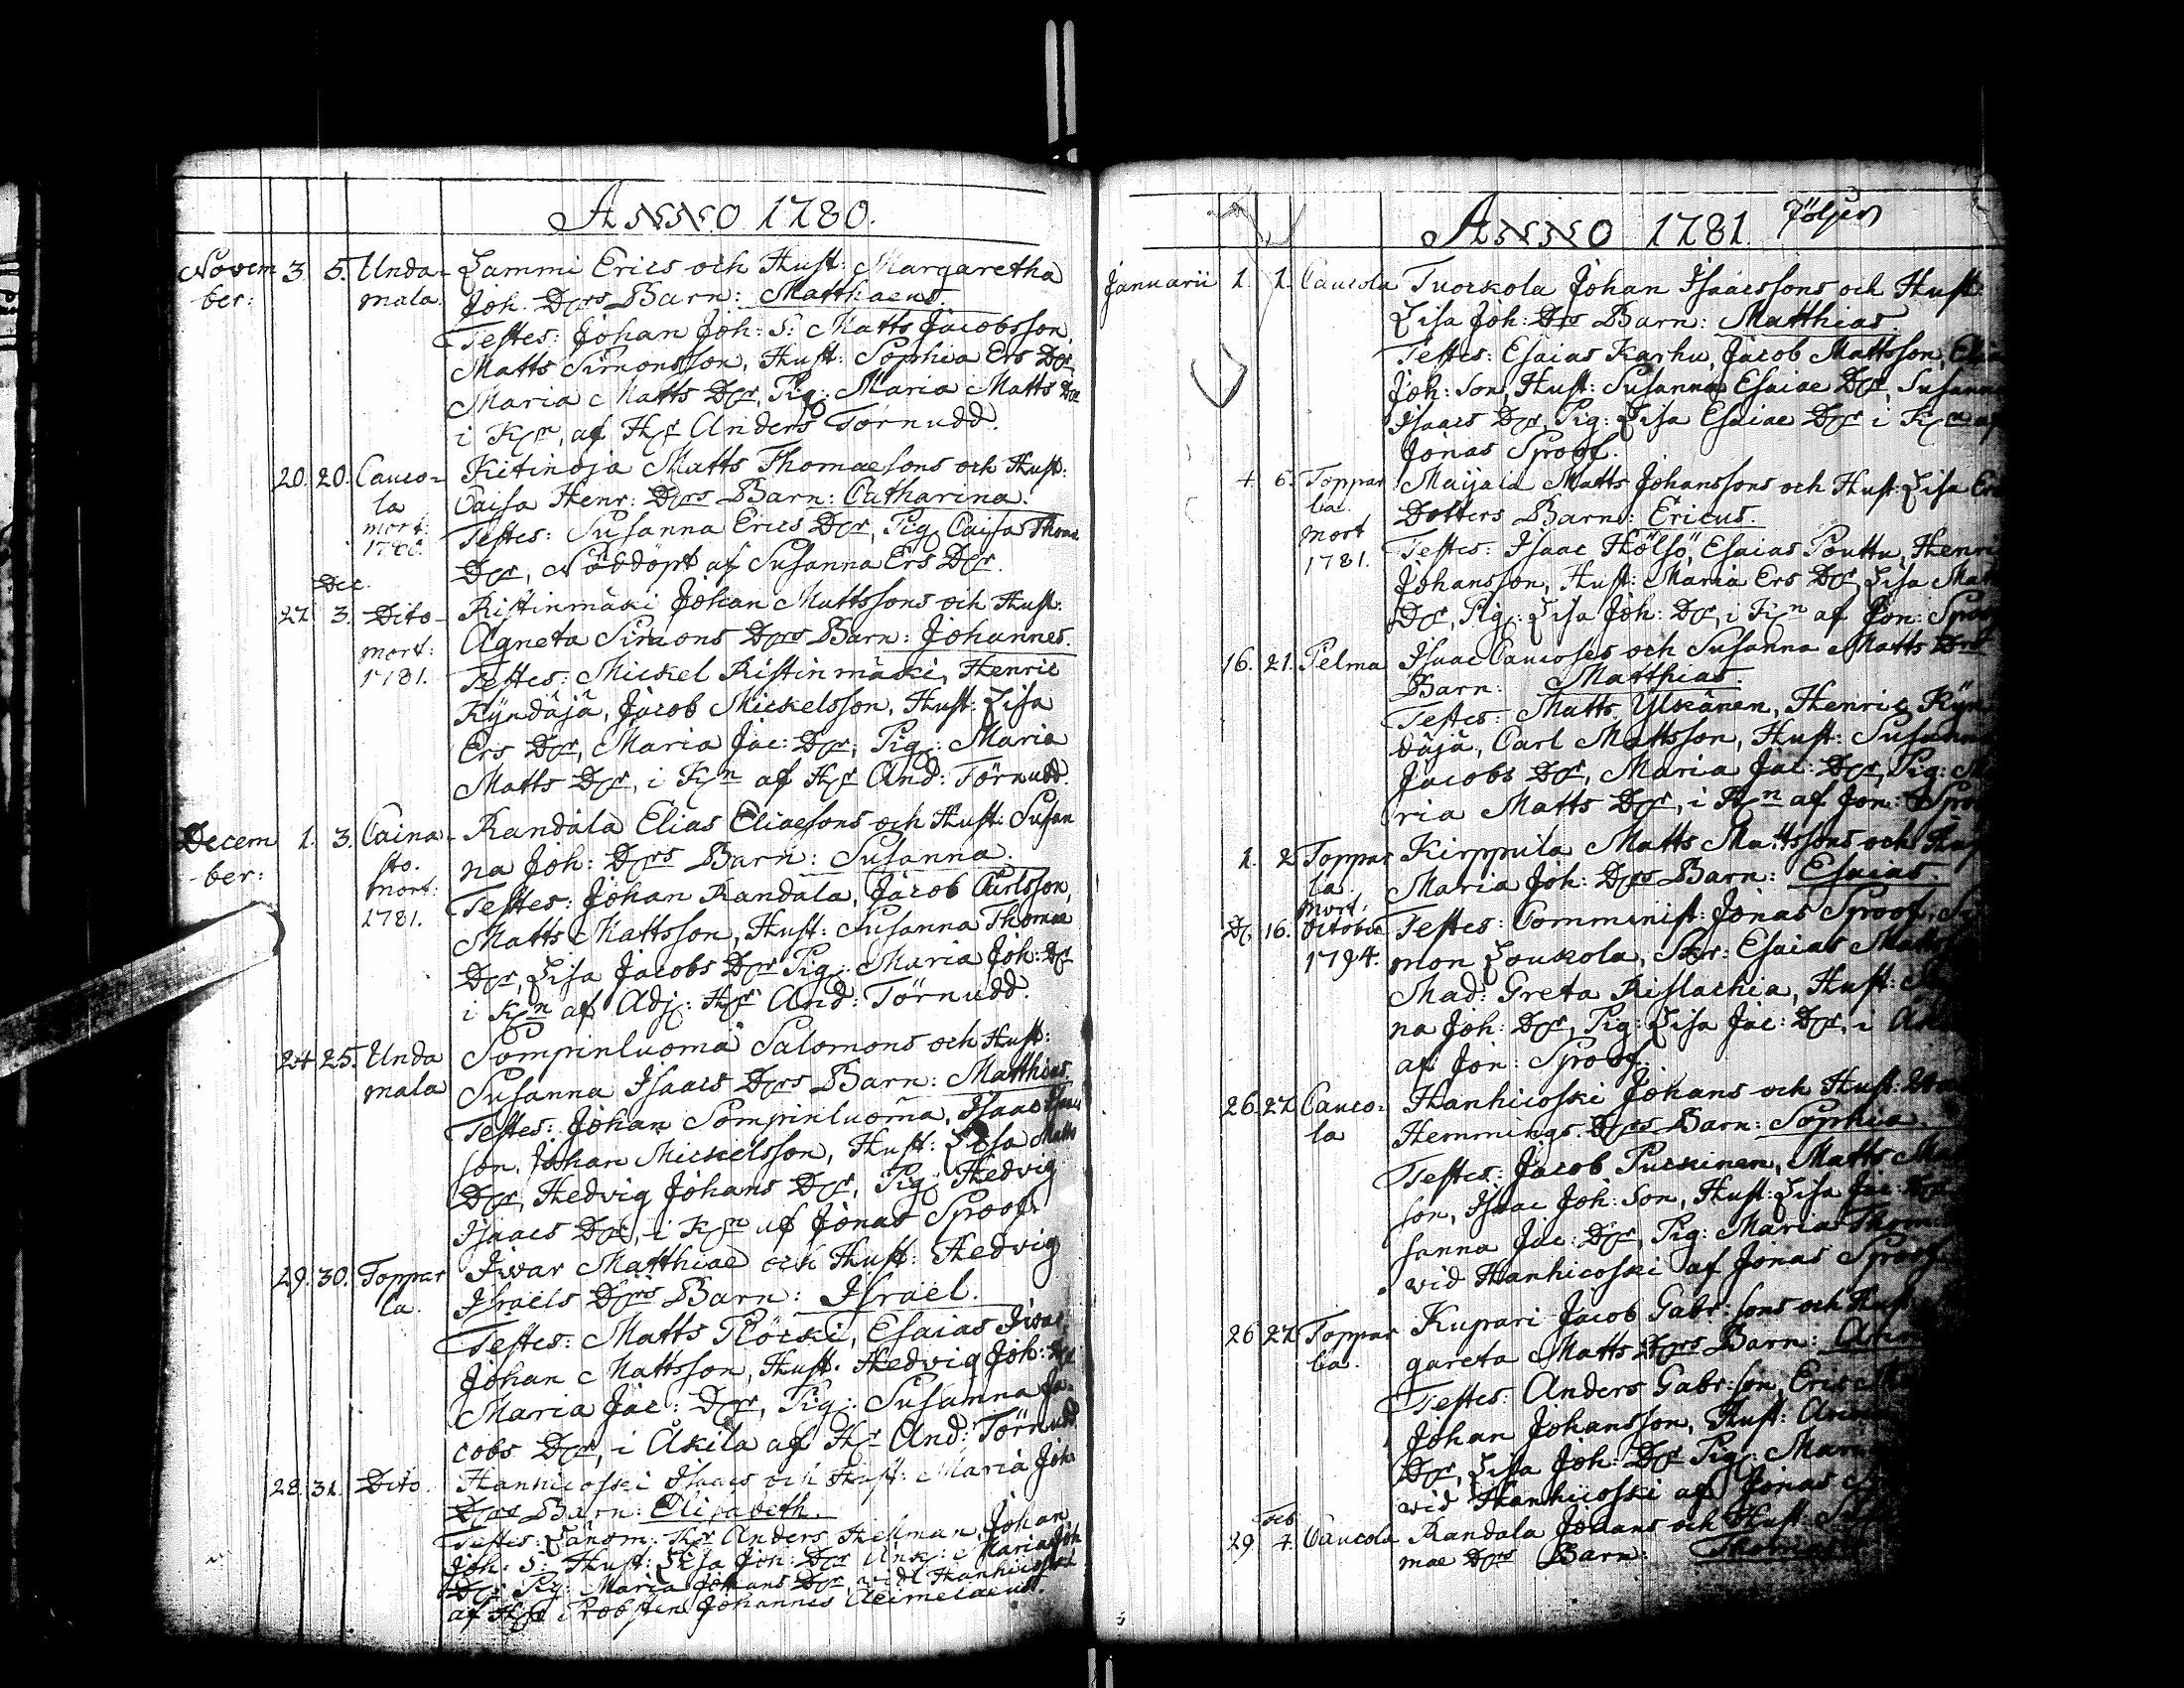 ANNO 1780.
Novem 3. 5. Unda- Lammi Erics och Hust: Margaretha
ber: mala. Joh. Drs Barn: Matthaeus.
Testes: Johan Joh: S: Matts Jacobsson,
Matts Simonsson, Hust: Sophia Ers Dr
Maria Matts Dr, Pig: Maria Matts Dr
i Kn, af Hr Anders Törnudd.
20. 20. Cauco- Kitinoja Matts Thomaesons och Hust:
la Caisa Henr: Drs Barn: Catharina.
mort: Testes: Susanna Erics Dr, Pig Caisa Thom
1780. Dr, Nöddöpt af Susanna Ers Dr.
Dec.
27 3. Dito- Ristinmäki Johan Mattssons och Hust:
mort: Agneta Simons Drs Barn: Johannes.
1781. Testes: Mickel Ristinmäki, Henric
Kyndäjä, Jacob Mickelsson, Hust: Lisa
Ers Dr, Maria Jac: Dr, Pig: Maria
Matts Dr, i Kn af Hr And: Törnudd.
Decem 1. 3. Caina- Randala Elias Eliaesons och Hust: Susan
ber: sto. na Joh: Drs Barn: Susanna.
mort: Testes: Johan Randala, Jacob Carlsson,
1781. Matts Mattsson, Hust: Susanna Thomae
Dr, Lisa Jacobs Dr Pig: Maria Joh: Dr
i Kn af Adj: Hr And: Törnudd.
24 25. Unda Sompinluoma Salomons och Hust:
mala Susanna Isaacs Drs Barn: Matthias.
Testes: Johan Sompinluoma, Isaac
son, Johan Mickelsson, Hust: Lisa Matts
Dr, Hedvig Johans Dr, Pig: Hedvig
Isaacs Dr, i Kn af Jonas Sproof.
29. 30. Toppar Iwar Matthiae och Hust: Hedvig
la. Israels Drs Barn: Israël.
Testes: Matts Plöcki, Esaias Iwar,
Johan Mattsson, Hust: Hedvig Joh: Dr
Maria Jac: Dr, Pig: Susanna Ja-
cobs Dr, i Äkila af Hr And: Törnudd
28. 31. Dito. Hanhicoski Isaacs och Hust: Maria Joh
Drs Barn: Elisabeth.
Testes: Länsm: Hr Anders Hellman, Johan
Joh: S: Hust: Lisa Joh: Dr Maria Joh
Dr Pig: Maria Johans Dr, vid Hanhicoski
af Hr Probsten Johannes Aeimelaeus.
ANNO 1781. Följer
Januarii 1. 1. Caucola Tuorkola Johan Isaacssons och Hust
Lisa Joh: Drs Barn: Matthias.
Testes: Esaias Karhu, Jacob Mattsson,
Joh: Son, Hust: Susanna Esaiae Dr, Susanna
Isaacs Dr, Pig: Lisa Esaiae Dr i Kn af
Jonas Sproof.
4 6. Toppar Maijala Matts Johanssons och Hust: Lisa
la. Dotters Barn: Ericus.
mort Testes: Isaac Hölsö, Esaias Pouttu, Henri
1781. Johansson, Hust: Maria Ers Dr, Lisa Mat
Dr, Pig: Lisa Joh: Dr, i Kn af Jon: Sproof
16. 21. Pelma Isaac Caucoses och Susanna Matts Drs
Barn: Matthias.
Testes: Matts Ylkänen, Henric Kyn
däjä, Carl Mattsson, Hust: Susanna
Jacobs Dr, Maria Jac: Dr, Pig: Ma
ria Matts Dr, i Kn af Jon: Sproof
1. 2 Toppar Kirppula Matts Mattssons och Hust
la. Maria Joh: Drs Barn: Esaias.
mort:
D. 16. October Testes: Comminist: Jonas Sproof, Si
1794. mon Loukola, Skr: Esaias Matts
Mad: Greta Kislachia, Hust:
na Joh: Dr, Pig: Lisa Jac: Dr, i
af Jon: Sproof.
26. 27. Cauco- Hanhicoski Johans och Hust:
la Hemmings Drs Barn: Sophia.
Testes: Jacob Puckinen, Matts
son, Isaac Joh: Son, Hust: Lisa Jac:
sanna Jac: Dr, Pig: Maria Thom
vid Hanhicoski af Jonas Sproof
26 27. Toppar Kupari Jacob Gabr: sons och Hust
la. gareta Matts Drs Barn:
Testes: Anders Gabr: son, Eric
Johan Johansson, Hust:
Dr, Lisa Joh: Dr Pig: Mar
vid Hanhicoski af Jonas
Feb
29 4. Caucola Randala Johans och Hust:
mae Drs Barn: Thomas